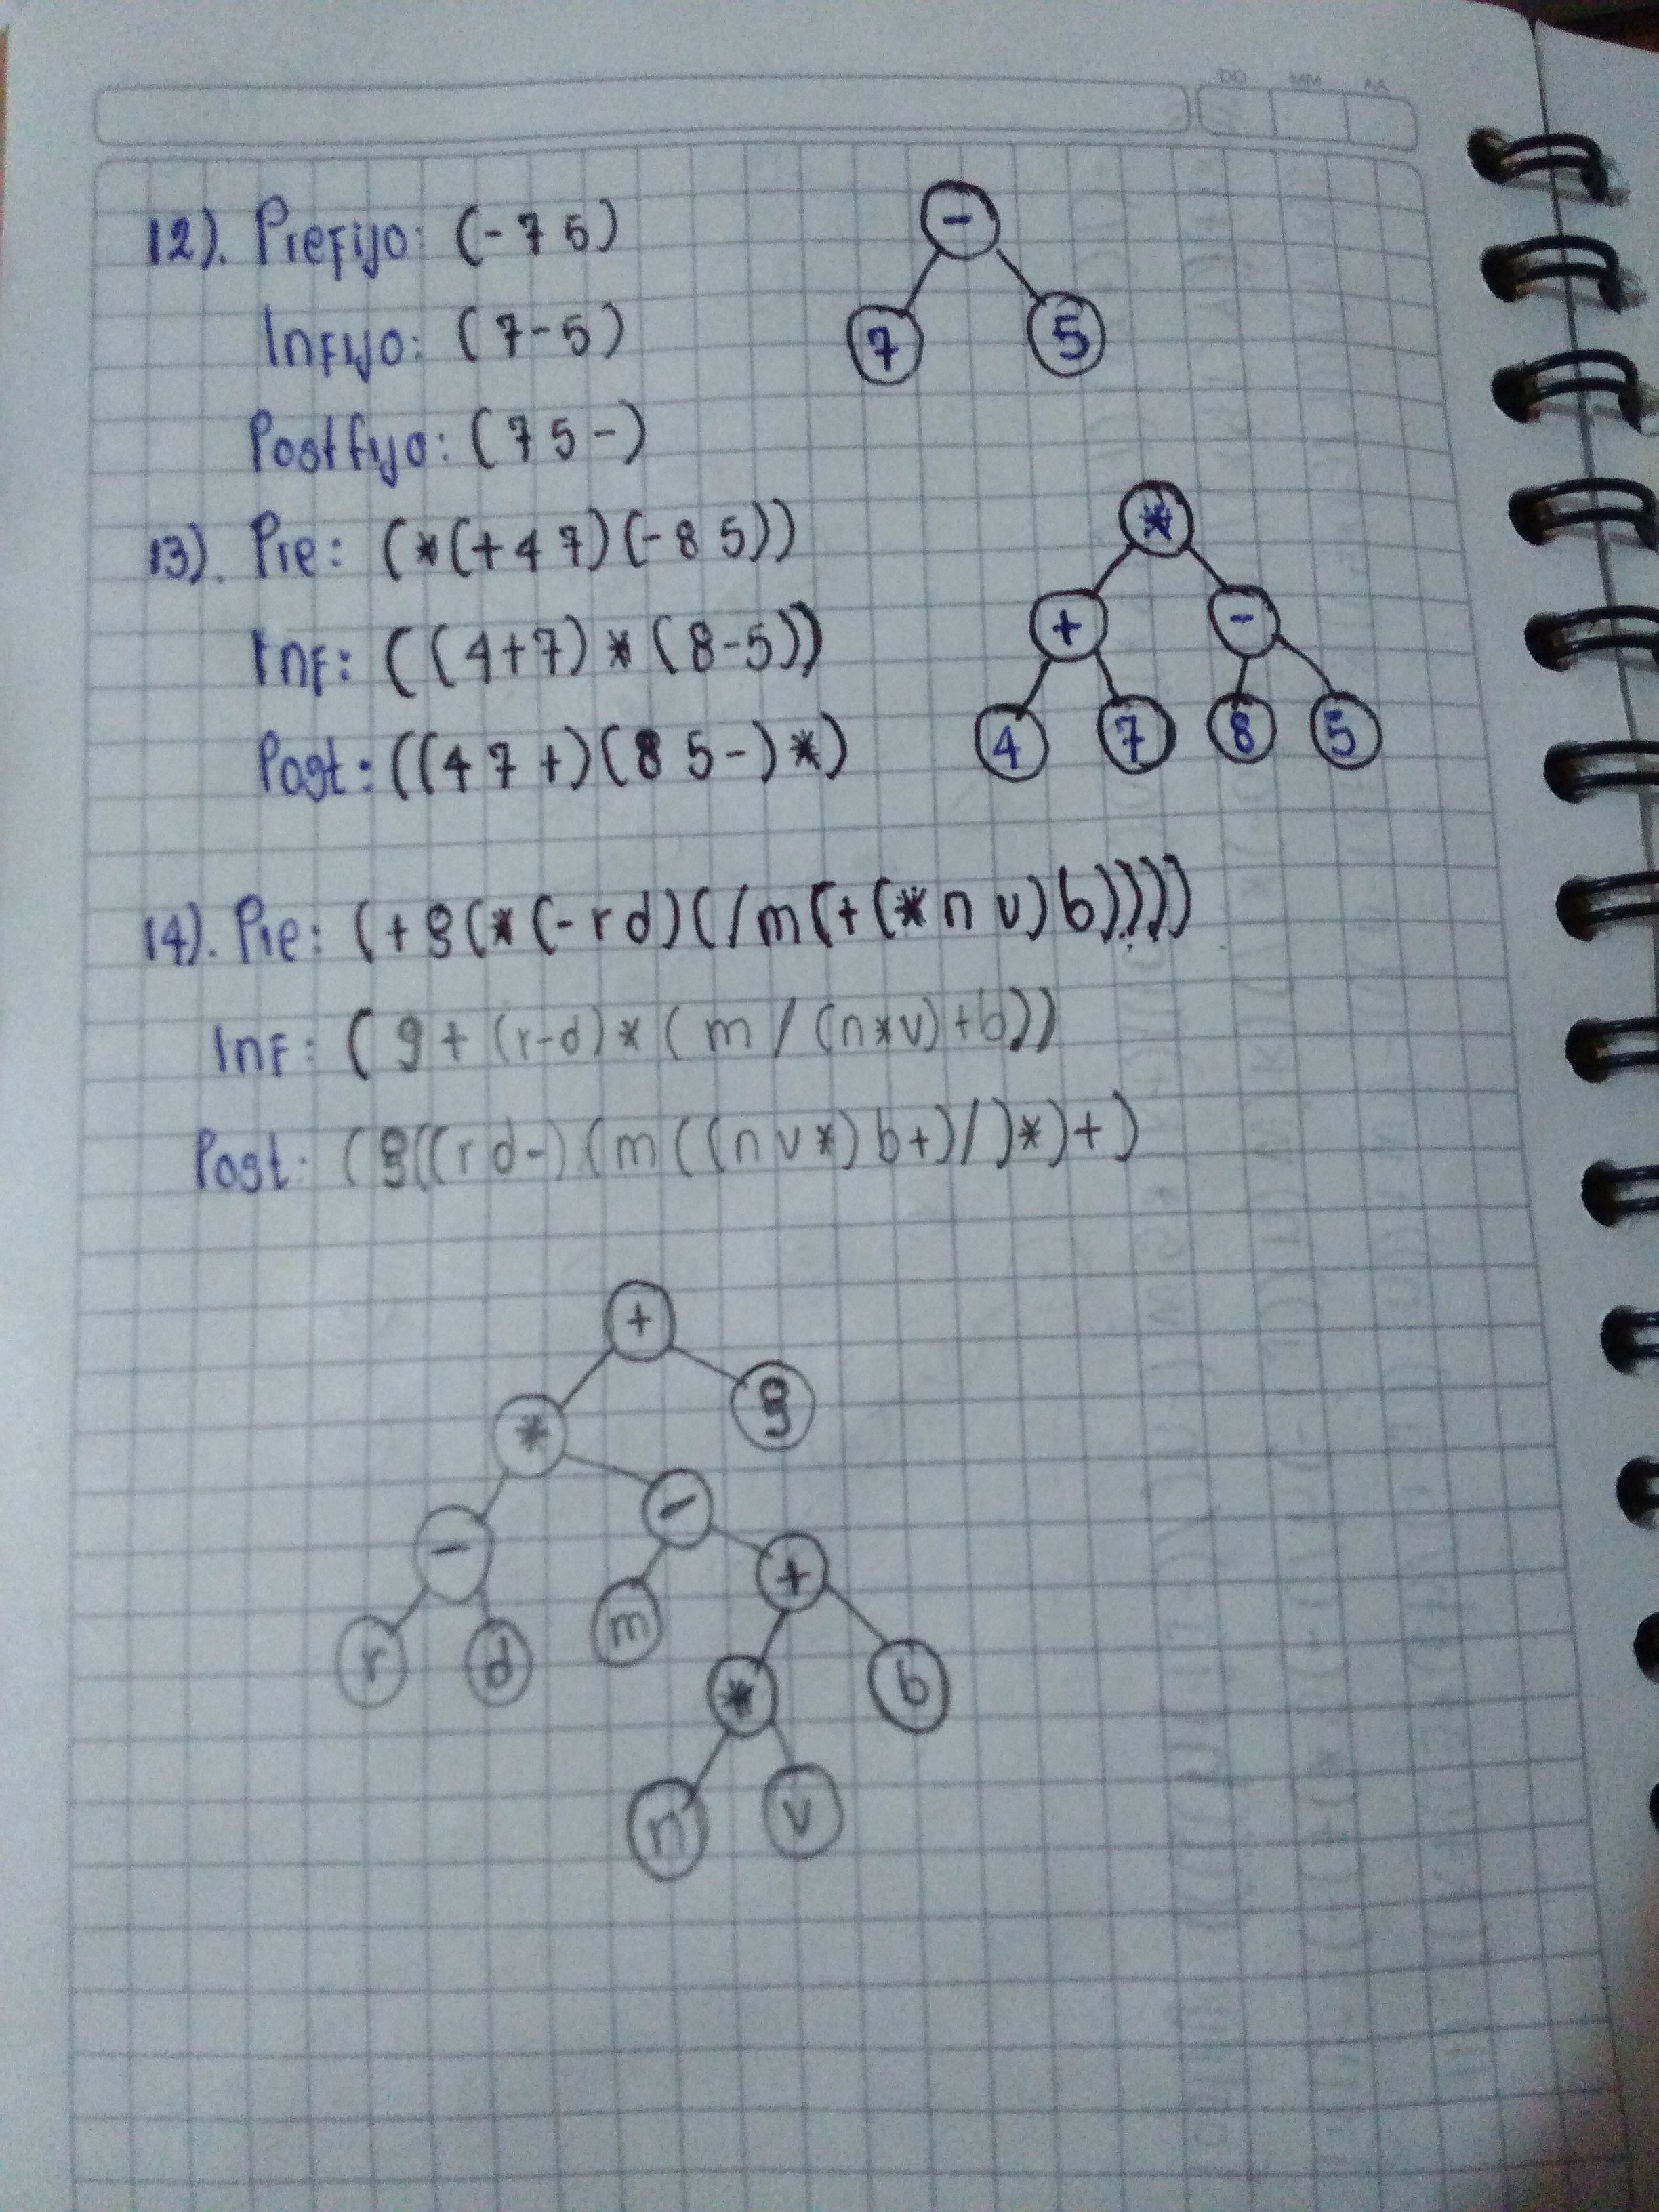 DD MM AA
12). Prefijo: (- 7 5)
Infijo: (7-5)
Postfijo: (7 5 -)
-
7 5
13). Pre: (*(+ 4 7)(- 8 5))
Inf: ((4+7) * (8-5))
Post: ((4 7 +)(8 5 -) *)
*
+ -
4 7 8 5
14). Pre: (+ g (* (- r d) (/ m (+ (* n v) b))))
Inf: (g + (r-d) * (m / (n*v) + b))
Post: (g((r d -) (m ((n v *) b +) /) *) +)
+
* g
- -
r d m +
* b
n v